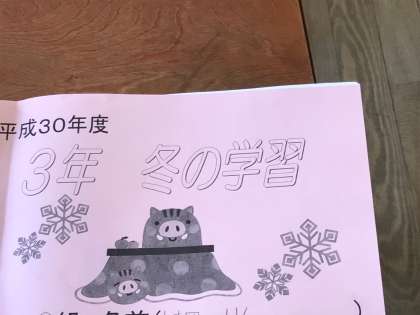 平成30年度
3年 冬の学習